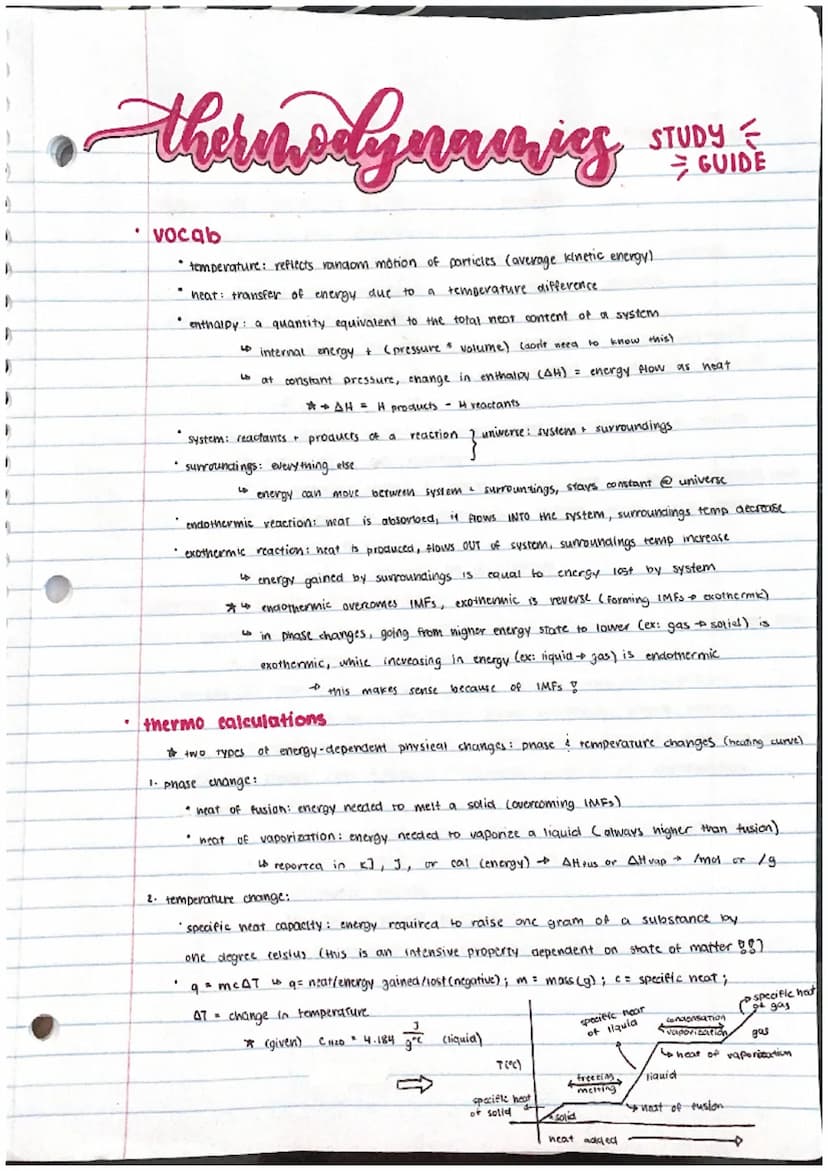 thermodynamics STUDY GUIDE
• vocab
• temperature: reflects random motion of particles (average kinetic energy)
• heat: transfer of energy due to a temperature difference
• enthalpy: a quantity equivalent to the total heat content of a system
↳ internal energy + (pressure * volume) (don't need to know this)
↳ at constant pressure, change in enthalpy (ΔH) = energy flow as heat
☆→ ΔH = H products - H reactants
• system: reactants + products of a reaction } universe: system + surroundings
• surroundings: everything else
↳ energy can move between system & surroundings, stays constant @ universe
• endothermic reaction: heat is absorbed, it flows INTO the system, surroundings temp decrease
• exothermic reaction: heat is produced, flows OUT of system, surroundings temp increase
↳ energy gained by surroundings is equal to energy lost by system
☆↳ endothermic overcomes IMFs, exothermic is reverse (forming IMFs → exothermic)
↳ in phase changes, going from higher energy state to lower (ex: gas → solid) is
exothermic, while increasing in energy (ex: liquid → gas) is endothermic
→ this makes sense because of IMFs !
• thermo calculations
☆ two types of energy-dependent physical changes: phase & temperature changes (heating curve)
1. phase change:
• heat of fusion: energy needed to melt a solid (overcoming IMFs)
• heat of vaporization: energy needed to vaporize a liquid (always higher than fusion)
↳ reported in kJ, J, or cal (energy) → ΔHfus or ΔHvap → /mol or /g
2. temperature change:
• specific heat capacity: energy required to raise one gram of a substance by
one degree celsius (this is an intensive property dependent on state of matter !!)
• q = mcΔT ↳ q = heat/energy gained/lost (negative); m = mass (g); c = specific heat;
ΔT = change in temperature
☆ (given) C H2O = 4.184 J/g°C (liquid)
⇨
T(°C)
specific heat of solid
solid
freezing
melting
heat of fusion
specific heat of liquid
liquid
condensation
vaporization
heat of vaporization
specific heat of gas
gas
heat added →